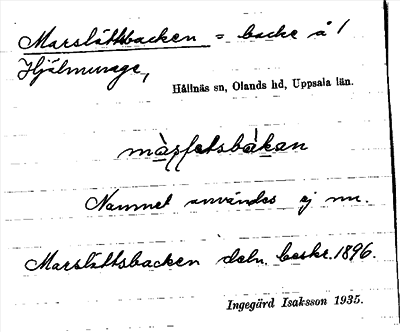 Marslåttsbacken = backe å 1
Hjälmunge,
Hållnäs sn, Olands hd, Uppsala län.
Namnet användes ej nu.
Marslåttsbacken deln. beskr. 1896.
Ingegärd Isaksson 1935.